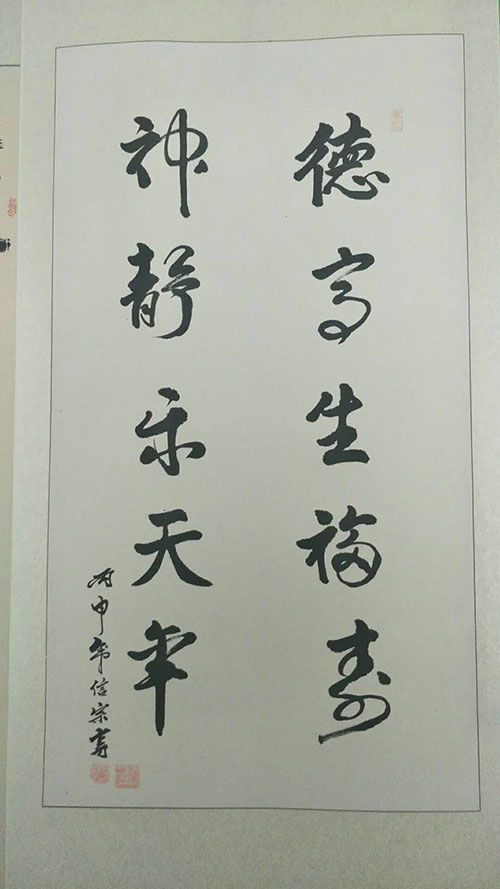 德高生福寿
神静乐天年
丙申年信宗书